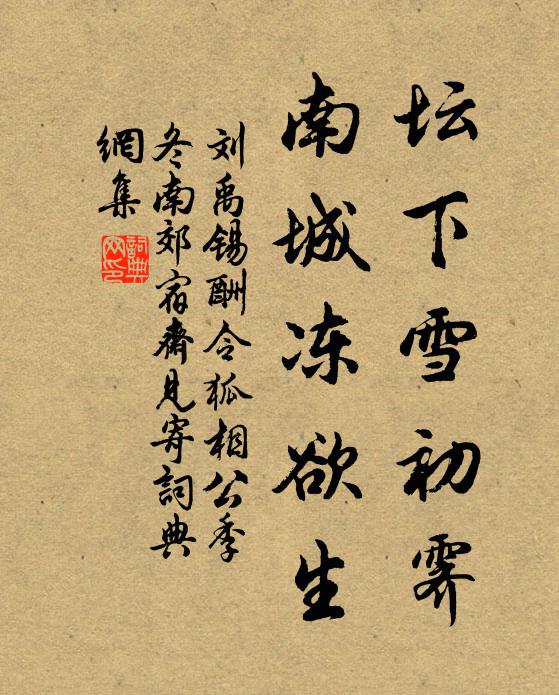 坛下雪初霁
南城冻欲生
刘禹锡酬令狐相公季
冬南郊宿斋见寄词典
網集
詞典網印